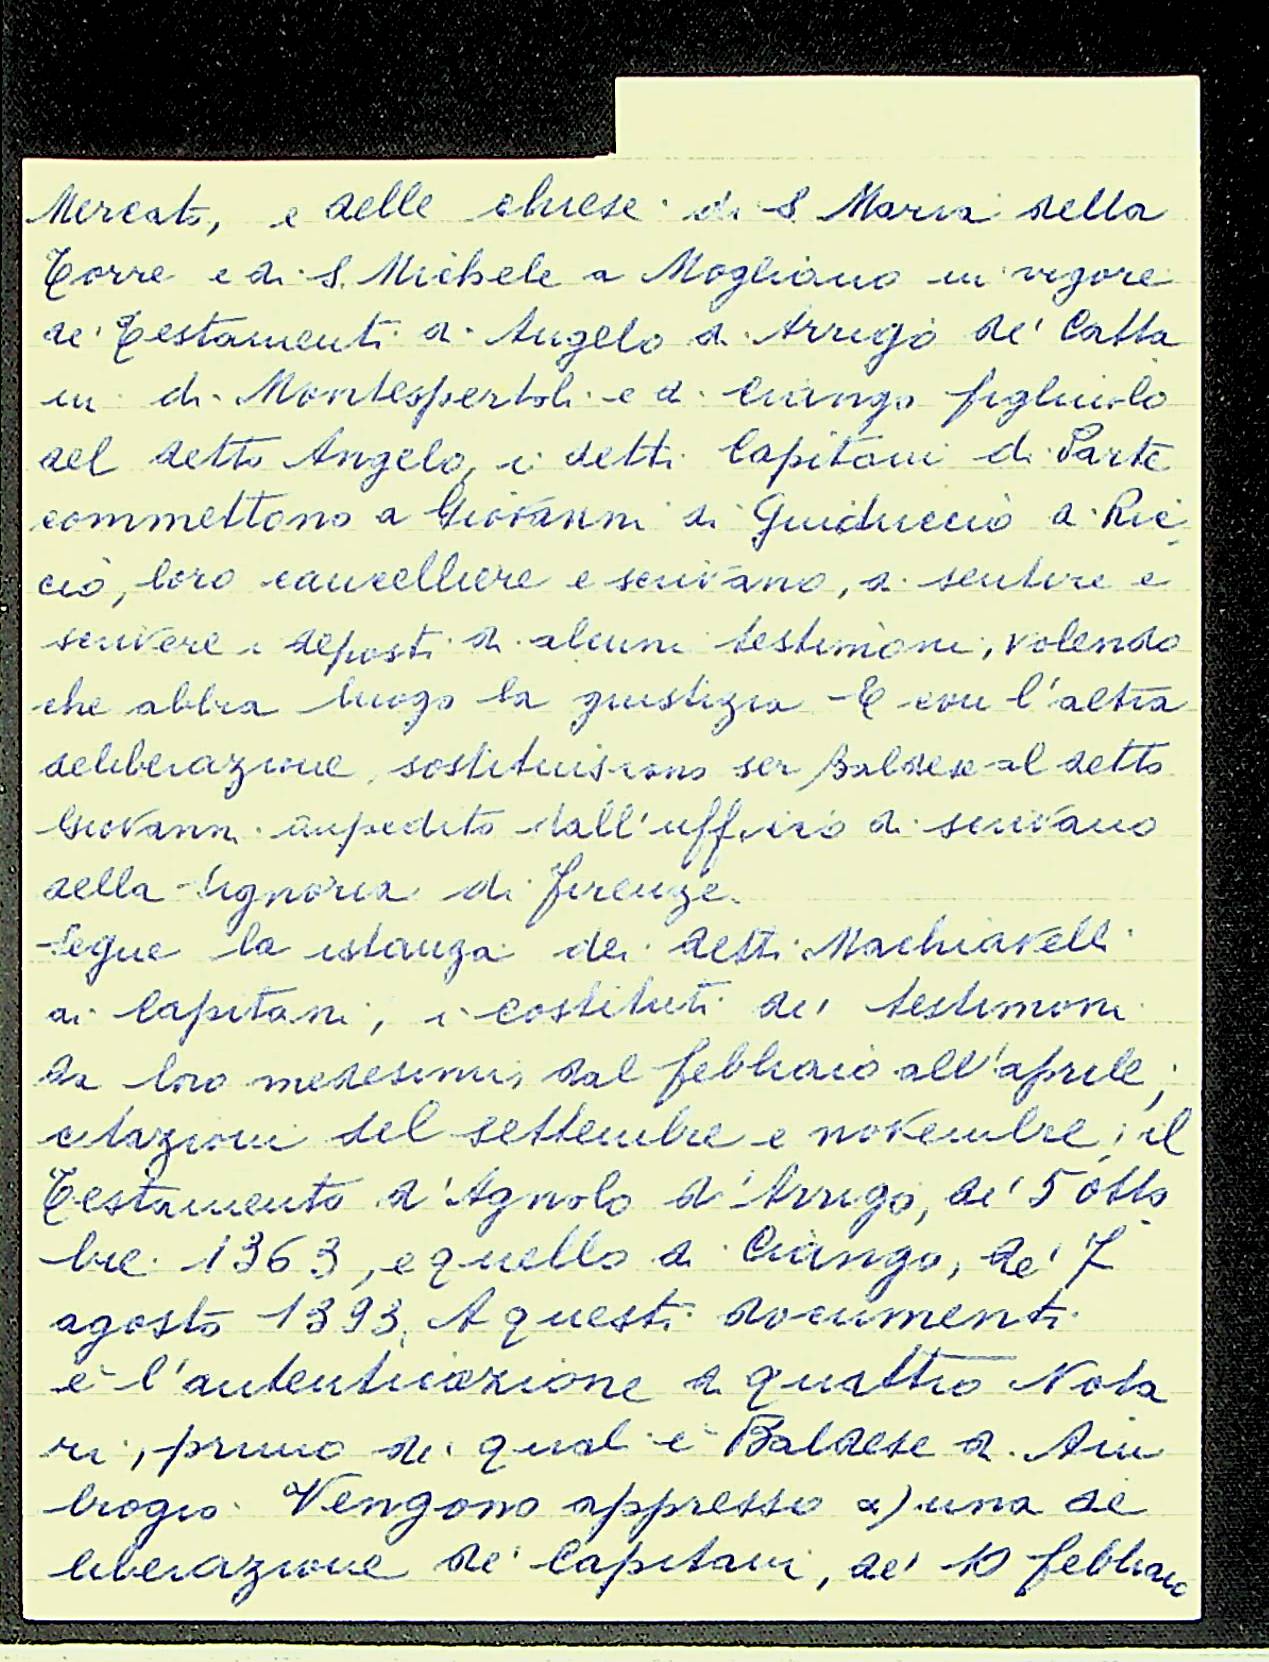 Mercato, e delle chiese di S. Maria della
Torre e di S. Michele a Mogliano in vigore
de' Testamenti di Angelo di Arrigo de' Catta
ni di Montespertoli e di Ciango figliuolo
del detto Angelo, i detti Capitani di Parte
commettono a Giovanni di Guiduccio di Ric
cio, loro cancelliere e scrivano, di sentire e
scrivere i deposti di alcuni testimoni, volendo
che abbia luogo la giustizia E con l'altra
deliberazione, sostituiscono ser Baldese al detto
Giovanni impedito dall'ufficio di scrivano
della Signoria di Firenze.
Segue la istanza dei detti Machiavelli
ai Capitani, i costituti dei testimoni
da loro medesimi, dal febbraio all'aprile;
citazioni del settembre e novembre; il
Testamento d'Agnolo d'Arrigo, de' 5 otto
bre 1363, e quello di Ciango, de' 7
agosto 1393. A questi documenti
è l'autenticazione di quattro Nota
ri, primo dei quali è Baldese di Am
brogio. Vengono appresso a) una de
liberazione de' Capitani, de' 10 febbraio